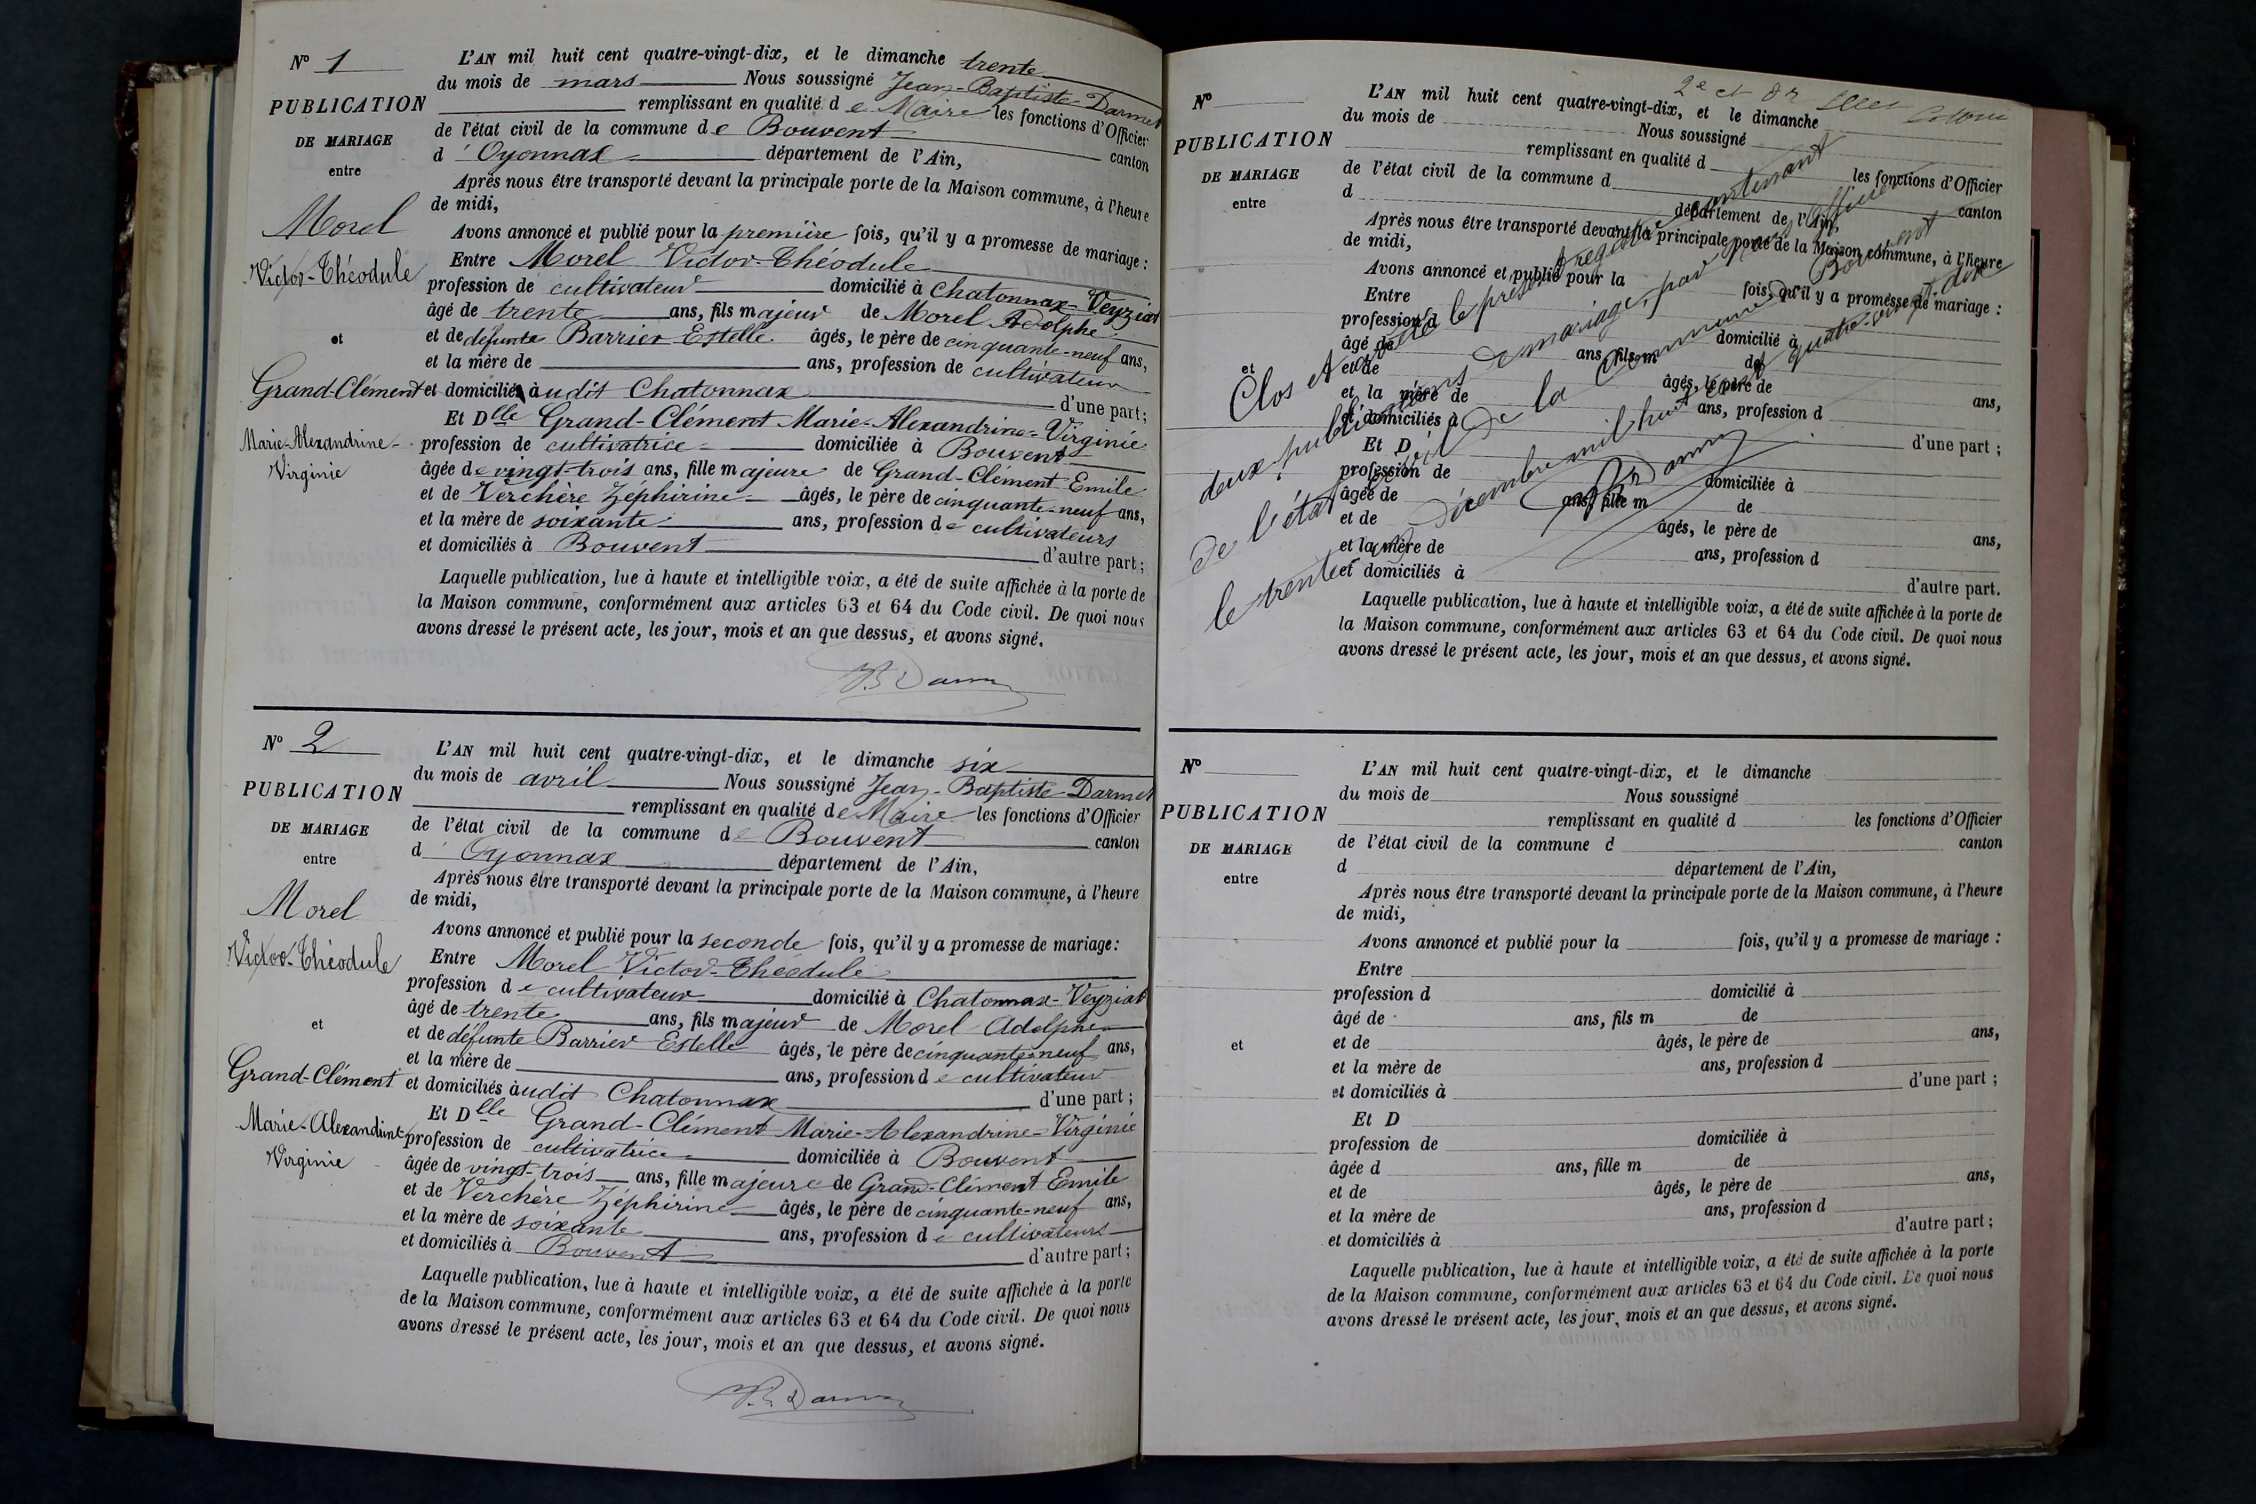 N° 1
PUBLICATION
DE MARIAGE
entre
Morel
Victor-Théodule
et
Grand-Clément
Marie-Alexandrine-
Virginie
L'AN mil huit cent quatre-vingt-dix, et le dimanche trente
du mois de mars Nous soussigné Jean-Baptiste-Darmet
remplissant en qualité de Maire les fonctions d'Officier
de l'état civil de la commune de Bouvent canton
d'Oyonnax département de l'Ain,
Après nous être transporté devant la principale porte de la Maison commune, à l'heure
de midi,
Avons annoncé et publié pour la première fois, qu'il y a promesse de mariage :
Entre Morel Victor-Théodule
profession de cultivateur domicilié à Chatonnax-Veyziat
âgé de trente ans, fils majeur de Morel Adolphe
et de défunte Barrier Estelle âgés, le père de cinquante-neuf ans,
et la mère de ans, profession de cultivateur
et domiciliés audit Chatonnax d'une part;
Et Dlle Grand-Clément Marie-Alexandrine-Virginie
profession de cultivatrice domiciliée à Bouvent
âgée de vingt-trois ans, fille majeure de Grand-Clément Emile
et de Verchère Zéphirine âgés, le père de cinquante-neuf ans,
et la mère de soixante ans, profession de cultivateurs
et domiciliés à Bouvent d'autre part;
Laquelle publication, lue à haute et intelligible voix, a été de suite affichée à la porte de
la Maison commune, conformément aux articles 63 et 64 du Code civil. De quoi nous
avons dressé le présent acte, les jour, mois et an que dessus, et avons signé.
N° 2
PUBLICATION
DE MARIAGE
entre
Morel
Victor-Théodule
et
Grand-Clément
Marie-Alexandrine
Virginie
L'AN mil huit cent quatre-vingt-dix, et le dimanche six
du mois de avril Nous soussigné Jean-Baptiste-Darmet
remplissant en qualité de Maire les fonctions d'Officier
de l'état civil de la commune de Bouvent canton
d'Oyonnax département de l'Ain,
Après nous être transporté devant la principale porte de la Maison commune, à l'heure
de midi,
Avons annoncé et publié pour la seconde fois, qu'il y a promesse de mariage:
Entre Morel Victor-Théodule
profession de cultivateur domicilié à Chatonnax-Veyziat
âgé de trente ans, fils majeur de Morel Adolphe
et de défunte Barrier Estelle âgés, le père de cinquante-neuf ans,
et la mère de ans, profession de cultivateur
et domiciliés audit Chatonnax d'une part;
Et Dlle Grand-Clément Marie-Alexandrine-Virginie
profession de cultivatrice domiciliée à Bouvent
âgée de vingt-trois ans, fille majeure de Grand-Clément Emile
et de Verchère Zéphirine âgés, le père de cinquante-neuf ans,
et la mère de soixante ans, profession de cultivateurs
et domiciliés à Bouvent d'autre part;
Laquelle publication, lue à haute et intelligible voix, a été de suite affichée à la porte
de la Maison commune, conformément aux articles 63 et 64 du Code civil. De quoi nous
avons dressé le présent acte, les jour, mois et an que dessus, et avons signé.
2e et
N°
PUBLICATION
DE MARIAGE
entre
et
L'AN mil huit cent quatre-vingt-dix, et le dimanche
du mois de Nous soussigné
remplissant en qualité d les fonctions d'Officier
de l'état civil de la commune d canton
d département de l'Ain,
Après nous être transporté devant la principale porte de la Maison commune, à l'heure
de midi,
Avons annoncé et publié pour la fois, qu'il y a promesse de mariage :
Entre
profession d domicilié à
âgé de ans, fils m de
et de âgés, le père de ans,
et la mère de ans, profession d
et domiciliés à d'une part ;
Et D
profession de domiciliée à
âgée de ans, fille m de
et de âgés, le père de ans,
et la mère de ans, profession d
et domiciliés à d'autre part.
Laquelle publication, lue à haute et intelligible voix, a été de suite affichée à la porte de
la Maison commune, conformément aux articles 63 et 64 du Code civil. De quoi nous
avons dressé le présent acte, les jour, mois et an que dessus, et avons signé.
Clos et arrêté le présent registre contenant
deux publications de mariage, par nous officier
de l'état civil de la commune de Bouvent
le trente et un décembre mil huit cent quatre-vingt-dix
N°
PUBLICATION
DE MARIAGE
entre
et
L'AN mil huit cent quatre-vingt-dix, et le dimanche
du mois de Nous soussigné
remplissant en qualité d les fonctions d'Officier
de l'état civil de la commune d canton
d département de l'Ain,
Après nous être transporté devant la principale porte de la Maison commune, à l'heure
de midi,
Avons annoncé et publié pour la fois, qu'il y a promesse de mariage :
Entre
profession d domicilié à
âgé de ans, fils m de
et de âgés, le père de ans,
et la mère de ans, profession d
et domiciliés à d'une part ;
Et D
profession de domiciliée à
âgée d ans, fille m de
et de âgés, le père de ans,
et la mère de ans, profession d
et domiciliés à d'autre part ;
Laquelle publication, lue à haute et intelligible voix, a été de suite affichée à la porte
de la Maison commune, conformément aux articles 63 et 64 du Code civil. De quoi nous
avons dressé le présent acte, les jour, mois et an que dessus, et avons signé.